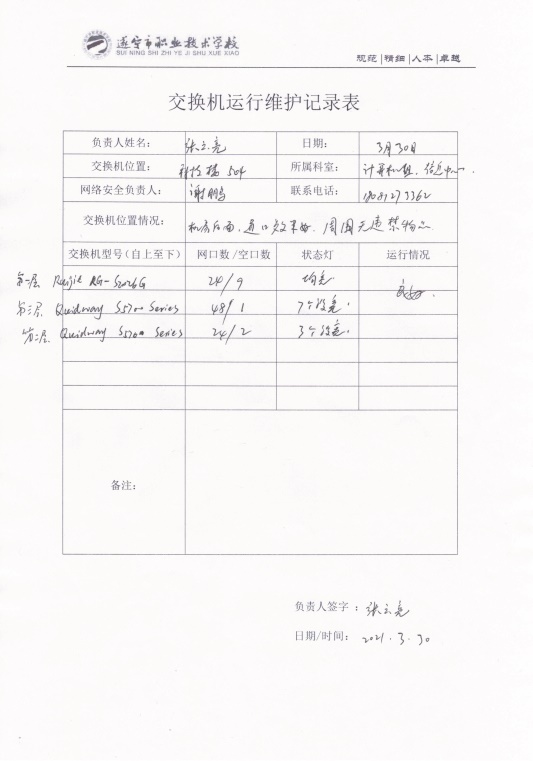 遂宁市职业技术学校
SUI NING SHI ZHI YE JI SHU XUE XIAO
规范|精细|人本|卓越
交换机运行维护记录表
负责人姓名： 张立亮 日期： 3月30日
交换机位置： 科技楼 504 所属科室： 计算机组、信息中心
网络安全负责人： 谢鹏 联系电话：
交换机位置情况： 机房后面，通风效果好，周围无违禁物品
交换机型号（自上至下） 网口数/空口数 状态灯 运行情况
第一层 Ruijie RG-S2026G 24/9 均亮 良好.
第二层 Quidway S5700 Series 48/1 7个没亮.
第三层 Quidway S5700 Series 24/2 3个没亮.
备注：
负责人签字： 张立亮
日期/时间： 2021.3.30